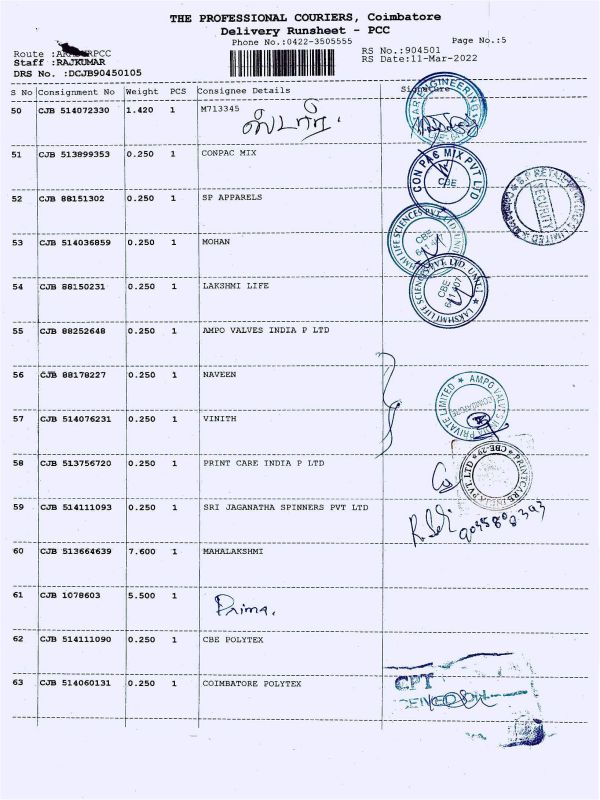 THE PROFESSIONAL COURIERS, Coimbatore
Delivery Runsheet - PCC
Phone No.:0422-3505555
Page No.:5
Route : RPCC
RS No.:904501
Staff :RAJKUMAR
RS Date:11-Mar-2022
DRS No. :DCJB90450105
S No Consignment No Weight PCS Consignee Details Signature
50 CJB 514072330 1.420 1 M713345
ஸ்டார்.
ENGINEERING
51 CJB 513899353 0.250 1 CONPAC MIX
CON PAC MIX PVT LTD
CBE
52 CJB 88151302 0.250 1 SP APPARELS
SECURITY
53 CJB 514036859 0.250 1 MOHAN
LIFE SCIENCES PVT. LTD. UNIT
CBE
54 CJB 88150231 0.250 1 LAKSHMI LIFE
LAKSHMI LIFE SCIENCES PVT. LTD. UNIT-1
CBE
55 CJB 88252648 0.250 1 AMPO VALVES INDIA P LTD
56 CJB 88178227 0.250 1 NAVEEN
AMPO VALVES INDIA PRIVATE LIMITED
COIMBATORE
57 CJB 514076231 0.250 1 VINITH
58 CJB 513756720 0.250 1 PRINT CARE INDIA P LTD
PRINTCARE INDIA PVT. LTD CBE-29
59 CJB 514111093 0.250 1 SRI JAGANATHA SPINNERS PVT LTD
60 CJB 513664639 7.600 1 MAHALAKSHMI
61 CJB 1078603 5.500 1
Prima.
62 CJB 514111090 0.250 1 CBE POLYTEX
63 CJB 514060131 0.250 1 COIMBATORE POLYTEX
CPT